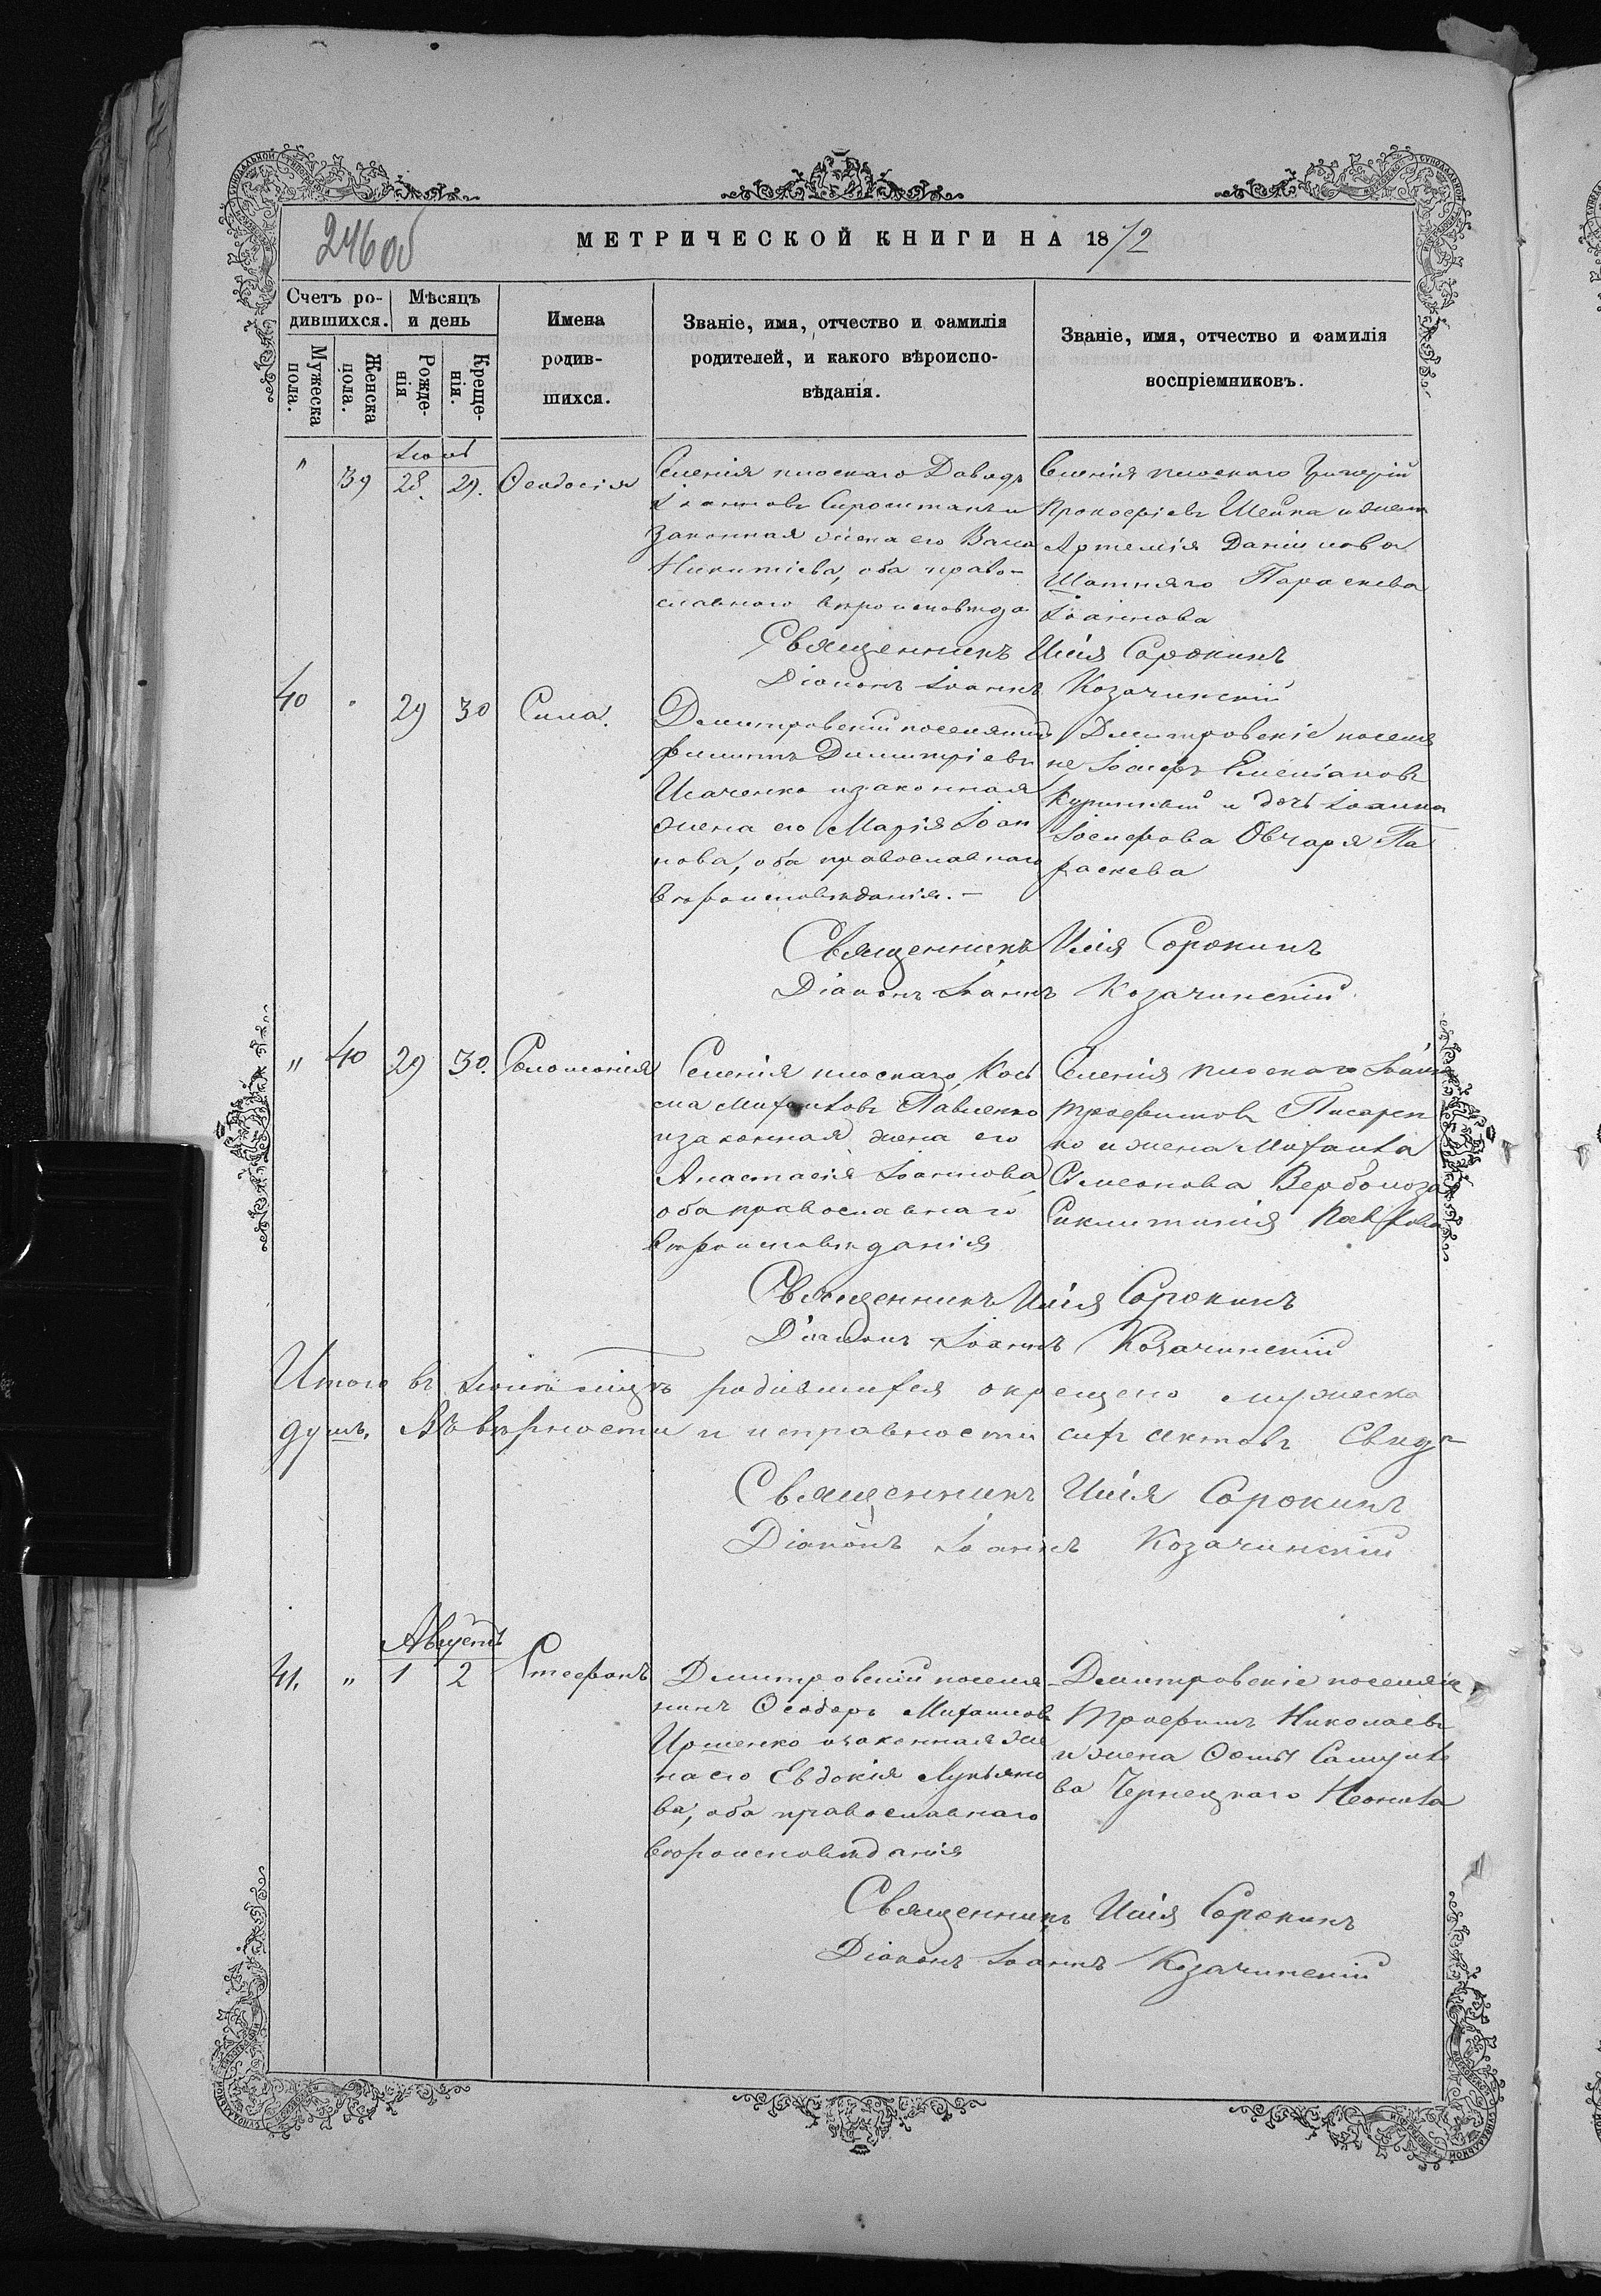 246об
МЕТРИЧЕСКОЙ КНИГИ НА 1872
Счетъ ро-
дившихся.
Мѣсяцъ
и день
Имена
родив-
шихся.
Званіе, имя, отчество и фамилія
родителей, и какого вѣроиспо-
вѣданія.
Званіе, имя, отчество и фамилія
воспріемниковъ.
Мужеска
пола.
Женска
пола.
Рожде-
нія
Креще-
нія.
" 39 28. 29. Ѳеодосія
Селенія плоскаго Давидъ
Іоанновъ и
законная жена его Васса
Никитіева, оба право-
славнаго вѣроисповѣда
Селенія плоскаго Григорій
Прокофіевъ Шейка и жена
Артемія Даніилова
Параскева
Іоаннова
Священникъ Илія Сорокинъ
Діаконъ Іоаннъ Козачинскій
40 " 29 30 Сила.
Дмитровскій поселянинъ
Филиппъ Димитріевъ
Исаченко и законная
жена его Марія Іоан
нова, оба православнаго
вѣроисповѣданія.-
Дмитровскіе поселя
не Іосифъ Емеліановъ
и дочь Іоанна
Іосифова Овчаря Па
раскева
Священникъ Илія Сорокинъ
Діаконъ Іоаннъ Козачинскій
" 40 29 30. Соломонія
Селенія плоскаго Косьма
Михаиловъ Павленко
и законная жена его
Анастасія Іоаннова
оба православнаго
вѣроисповѣданія
Селенія плоскаго Іоаннъ
Трофимовъ Писарен
ко и жена Михаила
Симеонова Верболоза
Синклитикія
Священникъ Илія Сорокинъ
Діаконъ Іоаннъ Козачинскій
Итого въ родившихся окрещено мужеска
душъ. Въ вѣрности и исправности сихъ актовъ Свид
Священникъ Илія Сорокинъ
Діаконъ Іоаннъ Козачинскій
Августъ
41. " 1 2 Стефанъ
Дмитровскій поселя
нинъ Ѳеодоръ Михаиловъ
и законная же
на его Евдокія Лукьяно
ва, оба православнаго
вѣроисповѣданія
Дмитровскіе поселяне
Трофимъ Николаевъ
и жена Ѳомы Самуило
ва Чернецкаго Неонила
Священникъ Илія Сорокинъ
Діаконъ Іоаннъ Козачинскій